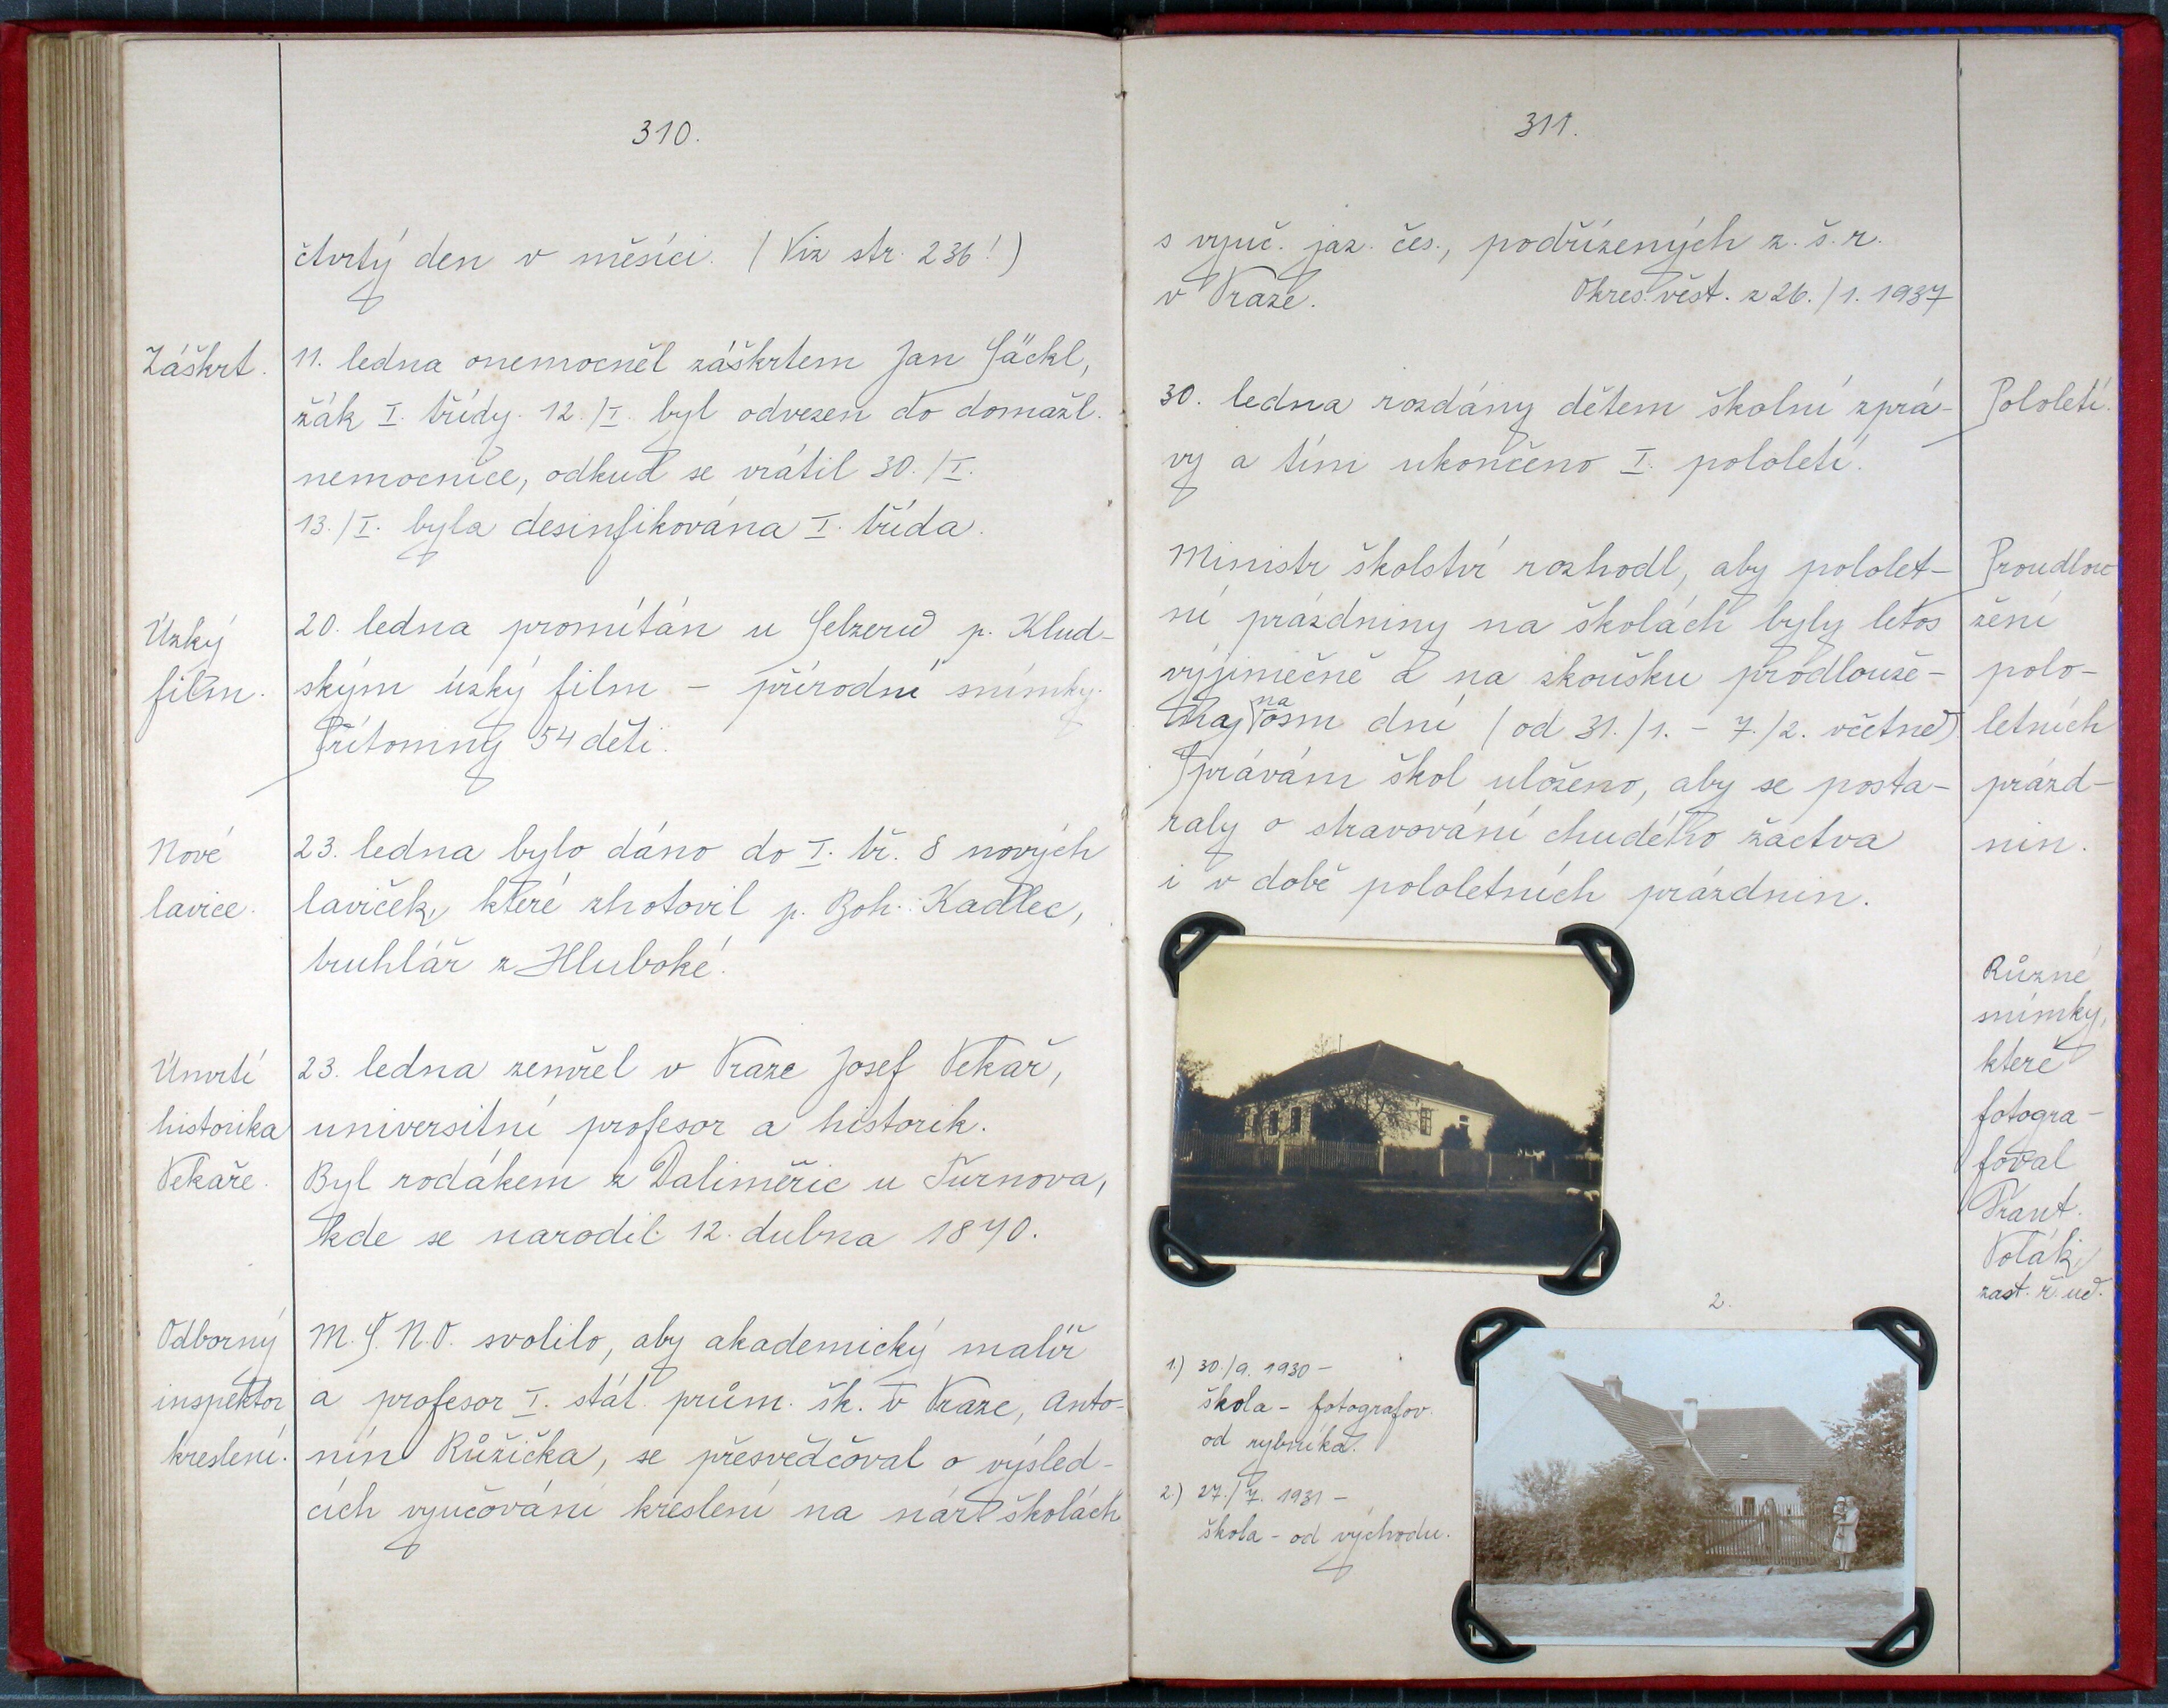 310.
čtvrtý den v měsíci. (Viz str. 236!)
Záškrt.
11. ledna onemocněl záškrtem Jan Säckl,
žák I. třídy. 12./I. byl odvezen do domažl.
nemocnice, odkud se vrátil 30./I.
13./I. byla desinfikována I. třída.
Úzký
film.
20. ledna promítán u Selzerů p. Klud-
ským úzký film – přírodní snímky.
Přítomny 54 děti.
Nové
lavice.
23. ledna bylo dáno do I. tř. 8 nových
laviček, které zhotovil p. Boh. Kadlec,
truhlář z Hluboké.
Úmrtí
historika
Pekaře.
23. ledna zemřel v Praze Josef Pekař,
universitní profesor a historik.
Byl rodákem z Daliměřic u Turnova,
kde se narodil 12. dubna 1870.
Odborný
inspektor
kreslení.
M.Š.N.O. svolilo, aby akademický malíř
a profesor I. stát. prům. šk. v Praze, Anto-
nín Růžička, se přesvědčoval o výsled-
cích vyučování kreslení na nár. školách
311.
s vyuč. jaz. čes., podřízených z. š. r.
v Praze. Okres. věst. z 26./1. 1937
30. ledna rozdány dětem školní zprá-
vy a tím ukončeno I. pololetí.
Pololetí.
Ministr školství rozhodl, aby pololet-
ní prázdniny na školách byly letos
výjimečně a na zkoušku prodlouže-
ny na osm dní (od 31./1. – 7./2. včetně)
Správám škol uloženo, aby se posta-
raly o stravování chudého žactva
i v době pololetních prázdnin.
Proudlou
žení
polo-
letních
prázd-
nin.
Různé
snímky,
které
fotogra-
foval
Frant.
Polák,
zast. ř. uč.
2.
1.) 30./9. 1930 –
škola – fotografov.
od rybníka.
2.) 27./7. 1931 –
škola – od východu.